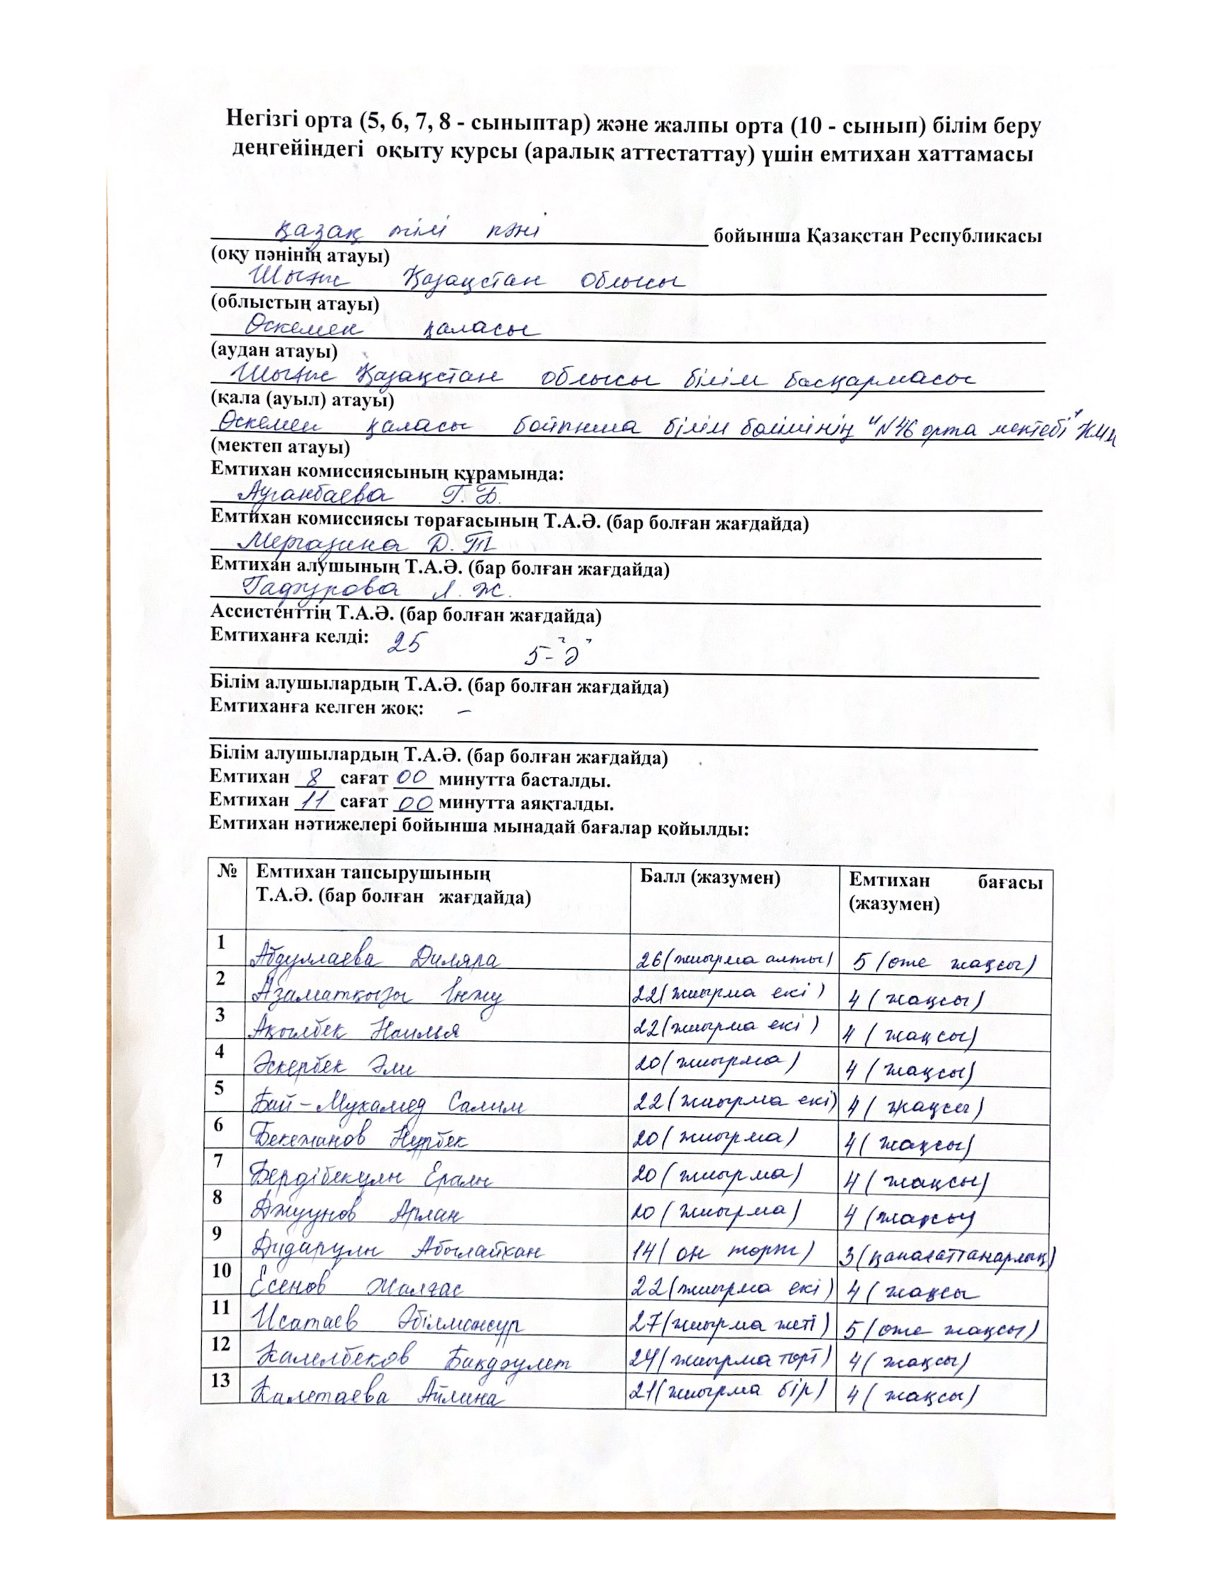 Негізгі орта (5, 6, 7, 8 - сыныптар) және жалпы орта (10 - сынып) білім беру
деңгейіндегі оқыту курсы (аралық аттестаттау) үшін емтихан хаттамасы
қазақ тілі пәні бойынша Қазақстан Республикасы
(оқу пәнінің атауы)
Шығыс Қазақстан облысы
(облыстың атауы)
Өскемен қаласы
(аудан атауы)
Шығыс Қазақстан облысы білім басқармасы
(қала (ауыл) атауы)
Өскемен қаласы бойынша білім бөлімінің "№46 орта мектебі" КММ
(мектеп атауы)
Емтихан комиссиясының құрамында:
Ауганбаева Г. Б.
Емтихан комиссиясы төрағасының Т.А.Ә. (бар болған жағдайда)
Мергазина Д. Т
Емтихан алушының Т.А.Ә. (бар болған жағдайда)
Гафурова Л. Ж.
Ассистенттің Т.А.Ә. (бар болған жағдайда)
Емтиханға келді: 25 5-"Ә"
Білім алушылардың Т.А.Ә. (бар болған жағдайда)
Емтиханға келген жоқ: –
Білім алушылардың Т.А.Ә. (бар болған жағдайда)
Емтихан 8 сағат 00 минутта басталды.
Емтихан 11 сағат 00 минутта аяқталды.
Емтихан нәтижелері бойынша мынадай бағалар қойылды:
№ Емтихан тапсырушының Балл (жазумен) Емтихан бағасы
Т.А.Ә. (бар болған жағдайда) (жазумен)
1 Абдуллаева Диляра 26 (жиырма алты) 5 (өте жақсы)
2 Азаматқызы Інжу 22 (жиырма екі) 4 (жақсы)
3 Ақылбек Наилья 22 (жиырма екі) 4 (жақсы)
4 Әскербек Әли 20 (жиырма) 4 (жақсы)
5 Бай-Мухамед Салим 22 (жиырма екі) 4 (жақсы)
6 Бекежанов Нұрбек 20 (жиырма) 4 (жақсы)
7 Бердібекұлы Ералы 20 (жиырма) 4 (жақсы)
8 Джуунов Арлан 20 (жиырма) 4 (жақсы)
9 Дидарұлы Абылайхан 14 (он төрт) 3 (қанағаттанарлық)
10 Есенов Жалғас 22 (жиырма екі) 4 (жақсы
11 Исатаев Әбілмансұр 27 (жиырма жеті) 5 (өте жақсы)
12 Калелбеков Бақдәулет 24 (жиырма төрт) 4 (жақсы)
13 Калетаева Айлина 21 (жиырма бір) 4 (жақсы)